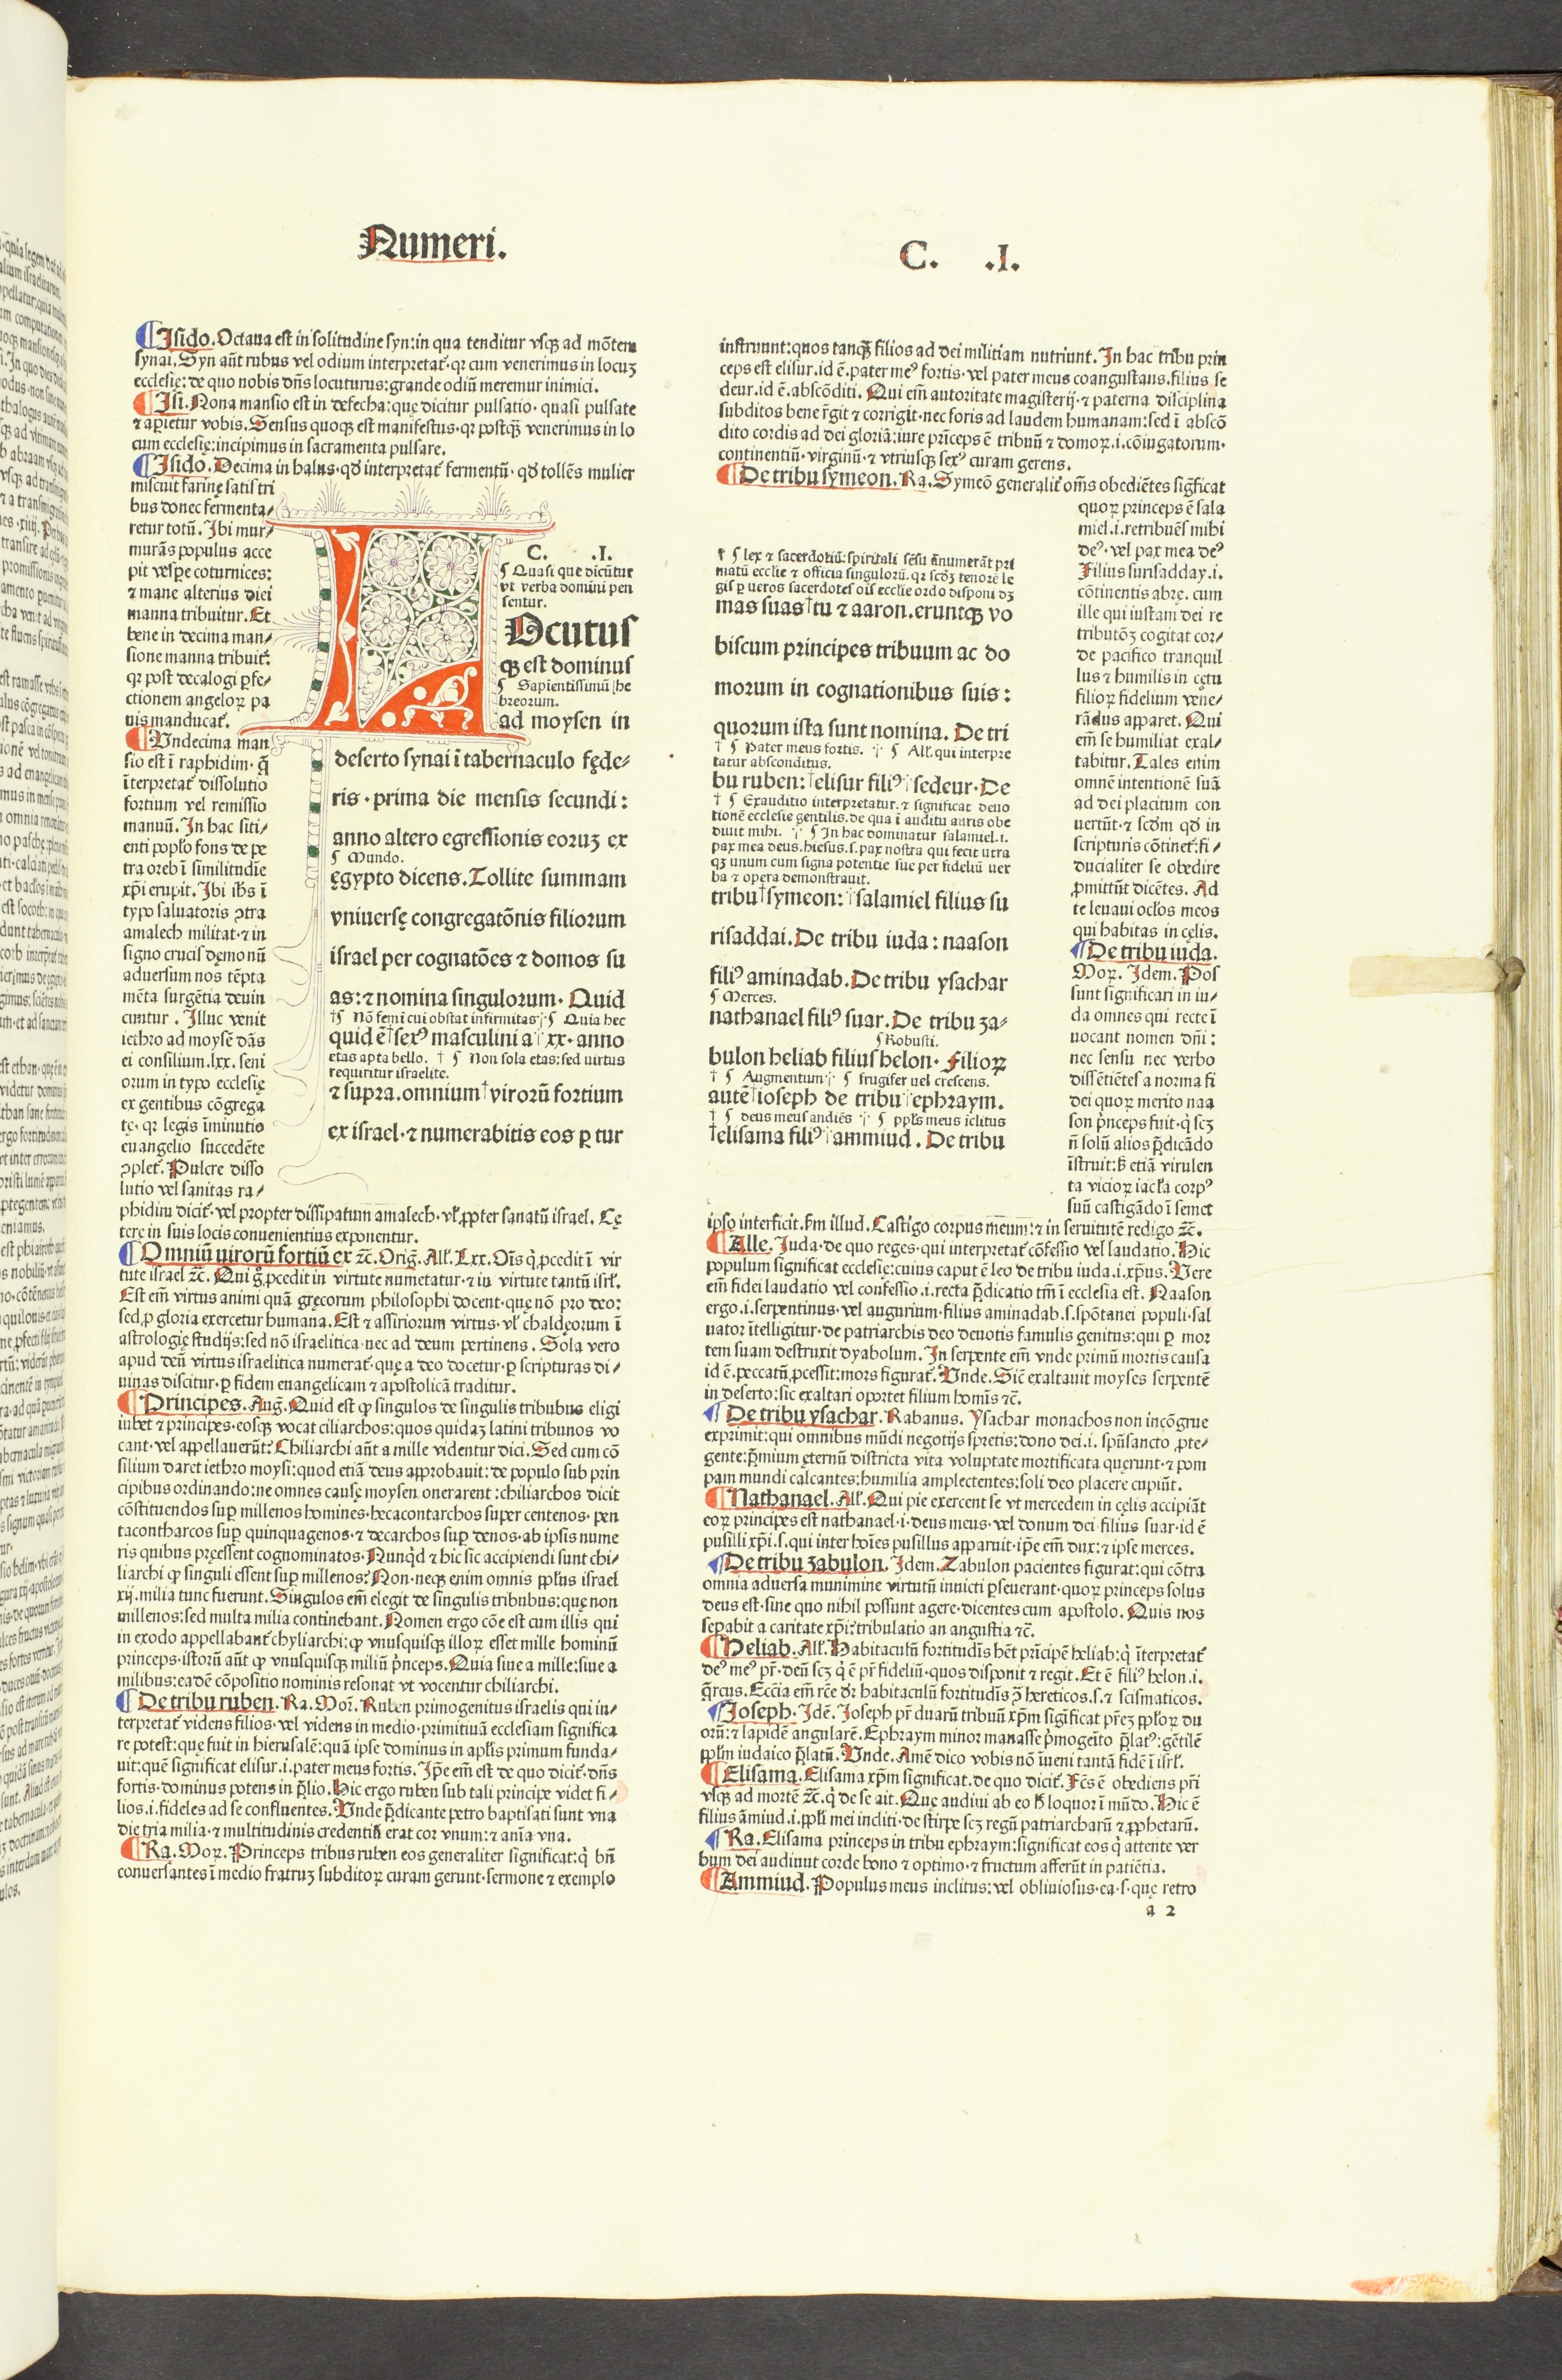 Numeri.
C. .I.
¶Isido. Octaua est in solitudine syn: in qua tenditur vsqꝫ ad mōtem
synai. Syn aūt rubus vel odium interpretat᷑. qꝛ cum venerimus in locuꝫ
ecclesię: de quo nobis dn̄s locuturus: grande odiū meremur inimici.
¶Isi. Nona mansio est in defecha: quę dicitur pulsatio. quasi pulsate
⁊ aꝑietur vobis. Sensus quoqꝫ est manifestus. qꝛ postqꝫ̄ venerimus in lo
cum ecclesię: incipimus in sacramenta pulsare.
¶Isido. Decima in halus. qd̓ interpretat᷑ fermentū. qd̓ tollēs mulier
miscuit farinę satis tri
bus donec fermenta⸗
retur totū. Ibi mur⸗
murās populus acce
pit vesꝑe coturnices:
⁊ mane alterius diei
manna tribuitur. Et
bene in decima man⸗
sione manna tribuit᷑:
qꝛ post decalogi ꝑfe⸗
ctionem angeloꝝ pa
nis manducat᷑.
¶Undecima man
sio est ī raphidim. q̄
īterpretat᷑ dissolutio
fortium vel remissio
manuū. In hac siti⸗
enti popl̓o fons de pe
tra oreb ī similitudīe
xp̄i erupit. Ibi ih̄s ī
typo saluatoris ꝯtra
amalech militat. ⁊ in
signo crucis dęmonū
aduersum nos tēpta
mēta surgētia deuin
cuntur. Illuc venit
iethro ad moysē dās
ei consilium .lxx. seni
orum in typo ecclesię
ex gentibus cōgrega
tę. qꝛ legis īminutio
euangelio succedēte
ꝯplet᷑. Pulcre disso
lutio vel sanitas ra⸗
phidim dicit᷑. vel propter dissipatum amalech. vl̓ ꝓpter sanatū israel. Cę
tere in suis locis conuenientius exponentur.
C. .I.
¶ Quasi que dicūtur
vt verba domini pen
sentur.
LOcutus
qꝫ est dominus
¶ Sapientissimū he
breorum.
ad moysen in
deserto synai ī tabernaculo fęde⸗
ris. prima die mensis secundi:
anno altero egressionis eoruꝫ ex
¶ Mundo.
ęgypto dicens. Tollite summam
vniuersę congregatōnis filiorum
israel per cognatōes ⁊ domos su
as: ⁊ nomina singulorum. Quid
†¶ Nō femi cui obstat infirmitas ¶ Quia hec
quid ē †sexꝰ masculini a .xx. anno
etas apta bello. † ¶ Non sola etas: sed virtus
requiritur israelite.
⁊ supra. omnium †virorū fortium
ex israel. ⁊ numerabitis eos ꝑ tur
¶Omniū uirorū fortiū ex ⁊c̄. Orig̃. All̓. Lxx. Oīs q̇ ꝓcedit ī vir
tute israel ⁊c̄. Qui g̊ ꝓcedit in virtute numetatur. ⁊ in virtute tantū isrl̓.
Est em̄ virtus animi quā gręcorum philosophi docent. quę nō pro deo:
sed ꝓ gloria exercetur humana. Est ⁊ assiriorum virtus. vl̓ chaldęorum ī
astrologię studijs: sed nō israelitica. nec ad deum pertinens. Sola vero
apud deū virtus israelitica numerat᷑. quę a deo docetur. ꝑ scripturas di⸗
uinas discitur. ꝑ fidem euangelicam ⁊ apostolicā traditur.
¶Principes. Aug̃. Quid est ꝙ singulos de singulis tribubus eligi
iubet ⁊ principes. eosqꝫ vocat ciliarchos: quos quidaꝫ latini tribunos vo
cant. vel appellauerūt? Chiliarchi aūt a mille videntur dici. Sed cum cō
silium daret iethro moysi: quod etiā deus approbauit: de populo sub prin
cipibus ordinando: ne omnes causę moysen onerarent: chiliarchos dicit
cōstituendos suꝑ millenos homines. hecacontarchos super centenos. pen
tacontharcos suꝑ quinquagenos. ⁊ decarchos suꝑ denos. ab ipsis nume
ris quibus pręessent cognominatos. Nunqd̓ ⁊ hic sic accipiendi sunt chi⸗
liarchi ꝙ singuli essent suꝑ millenos? Non. neqꝫ enim omnis ppl̓us israel
xij. milia tunc fuerunt. Singulos em̄ elegit de singulis tribubus: quę non
millenos: sed multa milia continebant. Nomen ergo cōe est cum illis qui
in exodo appellabant᷑ chyliarchi: ꝙ vnusquisqꝫ illoꝝ esset mille hominū
princeps. istorū aūt ꝙ vnusquisqꝫ miliū pn̓ceps. Quia siue a mille: siue a
milibus: eadē cōpositio nominis resonat vt vocentur chiliarchi.
¶De tribu ruben. Ra. Moꝝ. Ruben primogenitus israelis qui in⸗
terpretat᷑ videns filios. vel videns in medio. primitiuā ecclesiam significa
re potest: quę fuit in hierusalē: quā ipse dominus in apl̓is primum funda⸗
uit: quē significat elisur .i. pater meus fortis. Ip̄e em̄ est de quo dicit᷑. dn̄s
fortis. dominus potens in p̄lio. Hic ergo ruben sub tali principe videt fi⸗
lios .i. fideles ad se confluentes. Unde p̄dicante petro baptisati sunt vna
die tria milia. ⁊ multitudinis credentiū erat cor vnum: ⁊ anīa vna.
¶Ra. Moꝝ. Princeps tribus ruben eos generaliter significat: q̇ bn̄
conuersantes ī medio fratruꝫ subditoꝝ curam gerunt. sermone ⁊ exemplo
instruunt: quos tanqꝫ̄ filios ad dei militiam nutriunt. In hac tribu prin
ceps est elisur .id ē. pater meꝰ fortis. vel pater meus coangustans. filius se
deur .id ē. abscōditi. Qui em̄ autoritate magisterij. ⁊ paterna disciplina
subditos bene r̄git ⁊ corrigit. nec foris ad laudem humanam: sed ī abscō
dito cordis ad dei gloriā: iure pn̓ceps ē tribuū ⁊ domoꝝ .i. cōiugatorum.
continentiū. virginū. ⁊ vtriusqꝫ sexꝰ curam gerens.
¶De tribu symeon. Ra. Symeō generalit᷑ om̄s obediētes sigf̄icat
quoꝝ princeps ē sala
miel .i. retribuēs mihi
deꝰ. vel pax mea deꝰ
Filius surisadday .i.
cōtinentis abrę. cum
ille qui iustam dei re
tributōꝫ cogitat cor⸗
de pacifico tranquil
lus ⁊ humilis in cętu
filioꝝ fidelium vene⸗
rādus apparet. Qui
em̄ se humiliat exal⸗
tabitur. Tales enim
omnē intentionē suā
ad dei placitum con
uertūt. ⁊ scd̓m qd̓ in
scripturis cōtinet᷑: fi⸗
ducialiter se obedire
ꝓmittūt dicētes. Ad
te leuaui ocl̓os meos
qui habitas in cęlis.
¶De tribu iuda.
Moꝝ. Idem. Pos̄
sunt significari in iu⸗
da omnes qui recte ī
uocant nomen dn̄i:
nec sensu nec verbo
dissētiētes a norma fi
dei quoꝝ merito naa
son pn̓ceps fuit. q̇ scꝫ
n̄ solū alios p̄dicādo
īstruit: ꝫ etiā virulen
ta vicioꝝ iacl̓a corpꝰ
suū castigādo ī semet
ipso interficit. ẜm illud. Castigo corpus meum: ⁊ in seruitutē redigo ⁊c̄.
† ¶ lex ⁊ sacerdotiū: spiritali sēsu ānumerāt pri
matū ecclie ⁊ officia singulorū. qꝛ scd̓ꝫ tenorē le
gis ꝑ ueros sacerdotes oīs ecclie ordo disponi dꝫ
mas suas †tu ⁊ aaron. eruntqꝫ vo
biscum principes tribuum ac do
morum in cognationibus suis:
quorum ista sunt nomina. De tri
† ¶ Pater meus fortis. ¶ All̓. qui interpre
tatur absconditus.
bu ruben: †elisur filiꝰ sedeur. De
† ¶ Exauditio interpretatur. ⁊ significat deuo
tionē ecclesie gentilis. de qua ī auditu auris obe
diuit mihi. ¶ In hac dominatur salamiel .i.
pax mea deus. hiesus .s. pax nostra qui fecit utra
qꝫ unum cum signa potentie sue per fideliū uer
ba ⁊ opera demonstrauit.
tribu †symeon: salamiel filius su
risaddai. De tribu iuda: naason
filiꝰ aminadab. De tribu ysachar
¶ Merces.
nathanael filiꝰ suar. De tribu za⸗
¶ Robusti.
bulon heliab filius helon. Filioꝝ
† ¶ Augmentum ¶ frugifer uel crescens.
autē †ioseph de tribu ephraym.
† ¶ deus meus audiēs ¶ ppl̓s meus īclitus
†elisama filiꝰ ammiud. De tribu
¶Alle. Iuda. de quo reges. qui interpretat᷑ cōfessio vel laudatio. Hic
populum significat ecclesię: cuius caput ē leo de tribu iuda .i. xp̄us. Vere
em̄ fidei laudatio vel confessio .i. recta p̄dicatio tm̄ ī ecclesia est. Naason
ergo .i. serpentinus. vel augurium. filius aminadab .s. spōtanei populi. sal
uator ītelligitur. de patriarchis deo deuotis famulis genitus: qui ꝑ mor
tem suam destruxit dyabolum. In serpente em̄ vnde primū mortis causa
id ē. peccatū ꝓcessit: mors figurat᷑. Unde. Sic̄ exaltauit moyses serpentē
in deserto: sic exaltari oportet filium homīs ⁊c̄.
¶De tribu ysachar. Rabanus. Ysachar monachos non incōgrue
exprimit: qui omnibus mūdi negotijs spretis: dono dei .i. spūsancto ꝓte⸗
gente: p̄mium ęternū districta vita voluptate mortificata quęrunt. ⁊ pom
pam mundi calcantes: humilia amplectentes: soli deo placere cupiūt.
¶Nathanael. All̓. Qui pie exercent se vt mercedem in cęlis accipiāt
eoꝝ princeps est nathanael .i. deus meus. vel donum dei filius suar. id ē
pusilli xp̄i .s. qui inter hoīes pusillus apparuit. ip̄e em̄ dux: ⁊ ipse merces.
¶De tribu zabulon. Idem. Zabulon pacientes figurat: qui cōtra
omnia aduersa munimine virtutū inuicti ꝑseuerant. quoꝝ princeps solus
deus est. sine quo nihil possunt agere. dicentes cum apostolo. Quis nos
seꝑabit a caritate xp̄i? tribulatio an angustia ⁊c̄.
¶Heliab. All̓. Habitaculū fortitudīs hēt pn̓cipē heliab: q̇ īterpretat᷑
deꝰ meꝰ pr̄. deū scꝫ q̇ ē pr̄ fideliū. quos disponit ⁊ regit. Et ē filiꝰ helon .i.
q̄rcus. Eccīa em̄ rc̄e dr̄ habitaculū fortitudīs ꝯ̄ hereticos .s. ⁊ scismaticos.
¶Ioseph. Idē. Ioseph pr̄ duarū tribuū xp̄m sigīficat pr̄eꝫ ppl̓oꝝ du
orū: ⁊ lapidē angularē. Ephraym minor manasse pm̓ogeīto p̄latꝰ: gētilē
ppl̓m iudaico p̄latū. Unde. Amē dico vobis nō īueni tantā fidē ī isrl̓.
¶Elisama. Elisama xp̄m significat. de quo dicit᷑. Fc̄s ē obediens pr̄i
vsqꝫ ad mortē ⁊c̄. q̇ de se ait. Quę audiui ab eo h̄ loquor ī mūdo. Hic ē
filius āmiud .i. ppl̓i mei incliti. de stirpe scꝫ regū patriarcharū ⁊ ꝓphetarū.
¶Ra. Elisama princeps in tribu ephraym: significat eos q̇ attente ver
bum dei audiunt corde bono ⁊ optimo. ⁊ fructum afferūt in patiētia.
¶Ammiud. Populus meus inclitus: vel obliuiosus. ea .s. quę retro
a 2